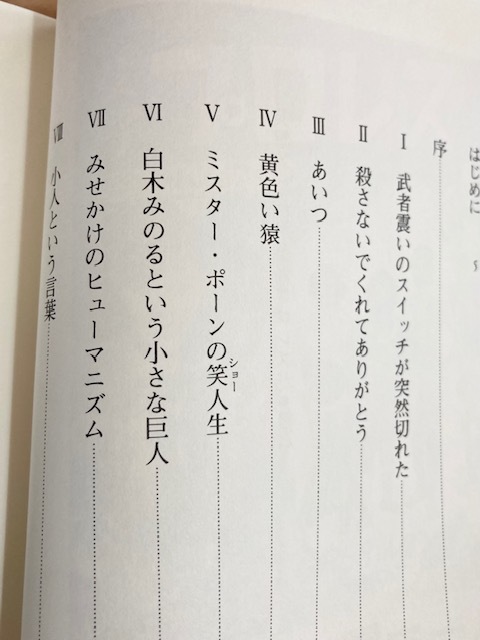 はじめに 〜
序
Ⅰ 武者震いのスイッチが突然切れた
Ⅱ 殺さないでくれてありがとう
Ⅲ あいつ
Ⅳ 黄色い猿
Ⅴ ミスター・ポーンの笑人生
ショー
Ⅵ 白木みのるという小さな巨人
Ⅶ みせかけのヒューマニズム
Ⅷ 小人という言葉